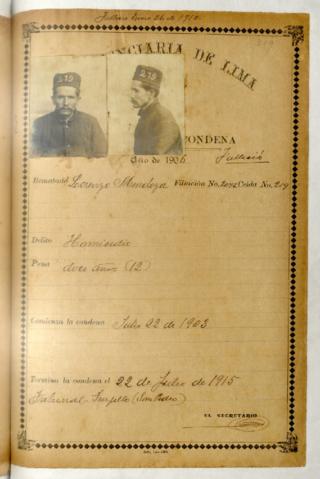 Falleció Enero 26 de 1910.
219
NCIARIA DE LIMA
219
219
CONDENA
Año de 1906
Falleció
Rematado Lorenzo Mendoza Filiación No. Celda No. 219
Delito Homicidio
Pena doce años (12)
Comienza la condena Julio 22 de 1903
Termina la condena el 22 de Julio de 1915
Tribunal - Trujillo (San Pedro)
EL SECRETARIO